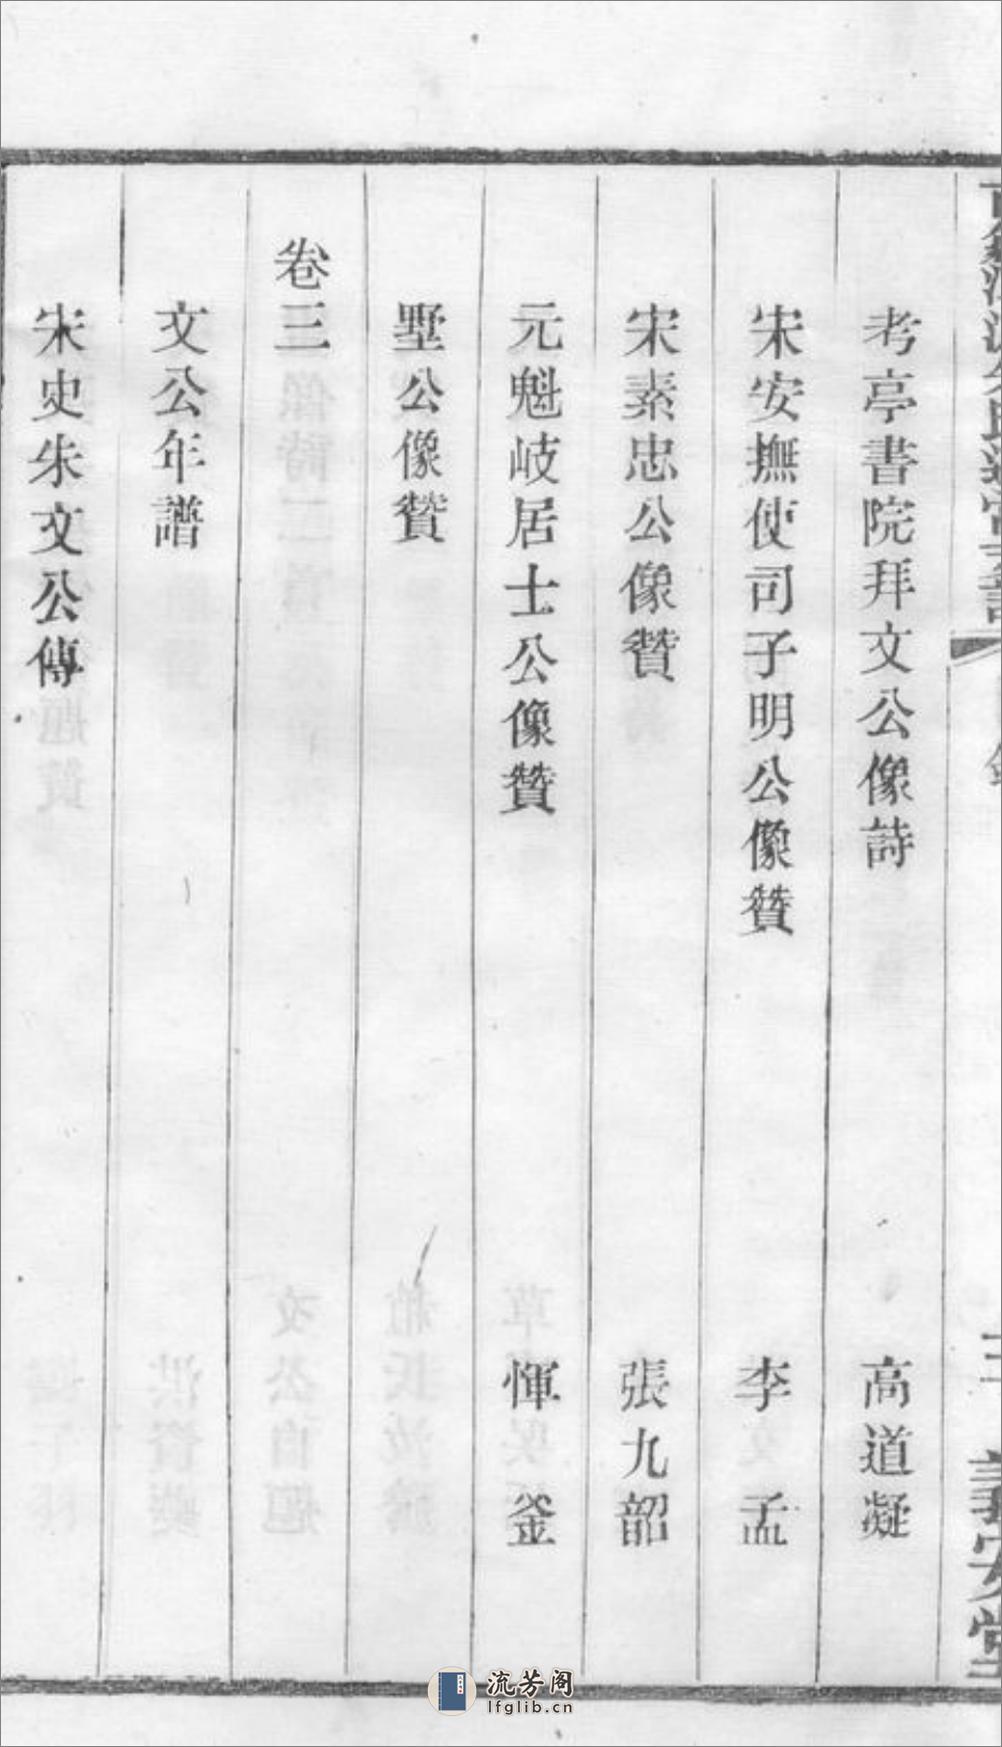 考亭書院拜文公像詩 高道凝
宋安撫使司子明公像贊 李孟
宋素忠公像贊 張九韶
元魁岐居士公像贊 惲釜
墅公像贊
卷三
文公年譜
宋史朱文公傳
三 義安堂
流芳阁
lfglib.cn